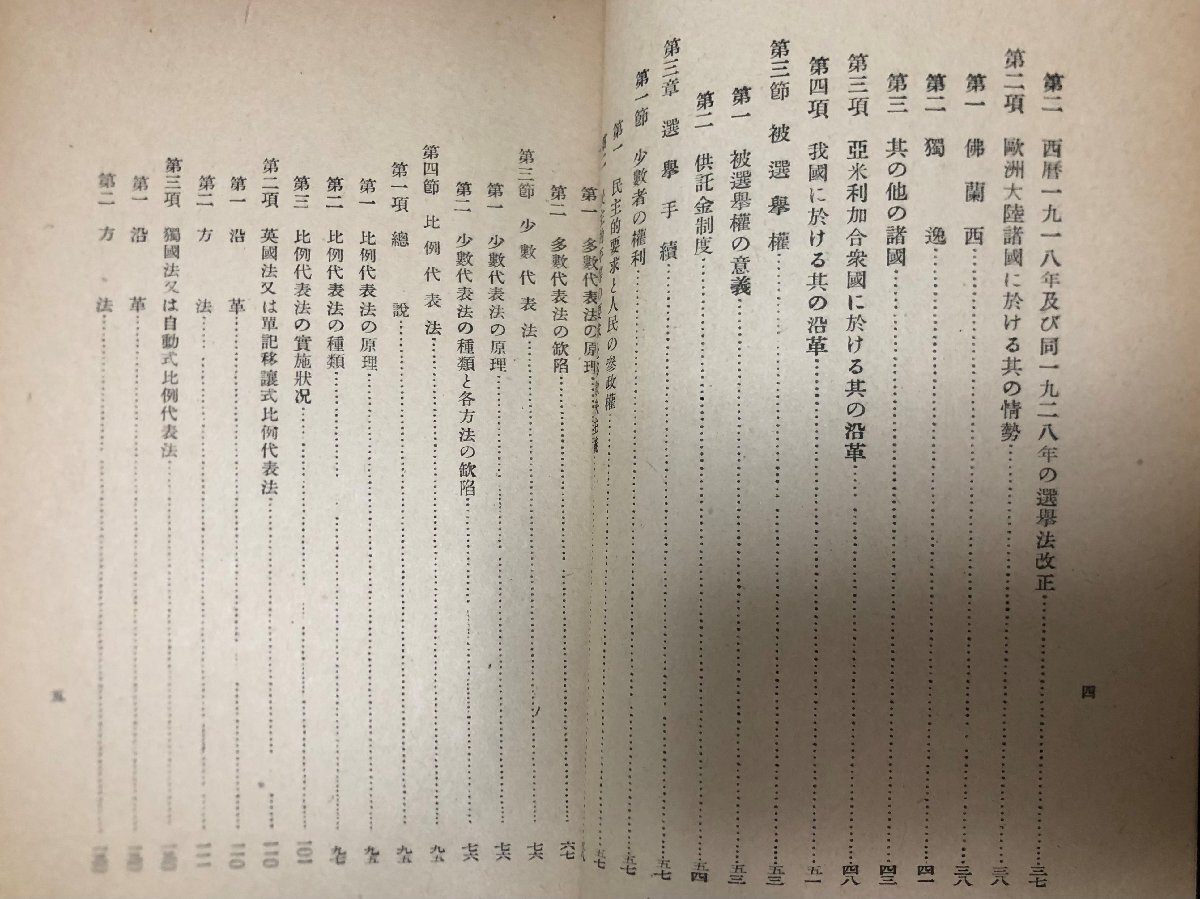 第二 西曆一九一八年及び同一九二八年の選擧法改正……三七
第二項 歐洲大陸諸國に於ける其の情勢……三八
第一 佛蘭西……三八
第二 獨逸……四一
第三 其の他の諸國……四三
第三項 亞米利加合衆國に於ける其の沿革……四八
第四項 我國に於ける其の沿革……五一
第三節 被選擧權……五三
第一 被選擧權の意義……五三
第二 供託金制度……五四
第三章 選擧手續……五七
第一節 少數者の權利……五七
第一 民主的要求と人民の參政權……五七
四
第一 多數代表法の原理
第二 多數代表法の缺陷……六七
第三節 少數代表法……七六
第一 少數代表法の原理……七六
第二 少數代表法の種類と各方法の缺陷……七六
第四節 比例代表法……九五
第一項 總說……九五
第一 比例代表法の原理……九五
第二 比例代表法の種類……九七
第三 比例代表法の實施狀況……一〇一
第二項 英國法又は單記移讓式比例代表法……一一〇
第一 沿革……一一〇
第二 方法……一一一
第三項 獨國法又は自動式比例代表法
第一 沿革
第二 方法
五